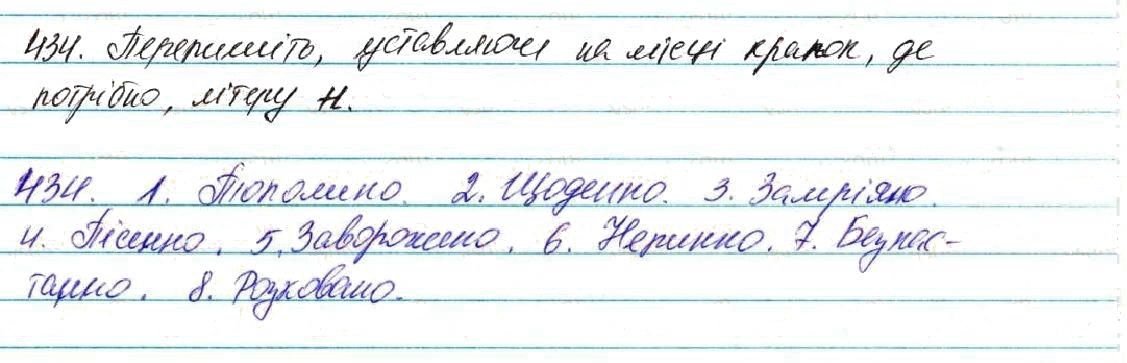 434. Перепишіть, уставляючи на місці крапок, де
потрібно, літеру н.
434. 1. Тополино. 2. Щоденно. 3. Замріяно.
4. Пісенно. 5. Заворожено. 6. Неринно. 7. Безпас-
танно. 8. Розковано.